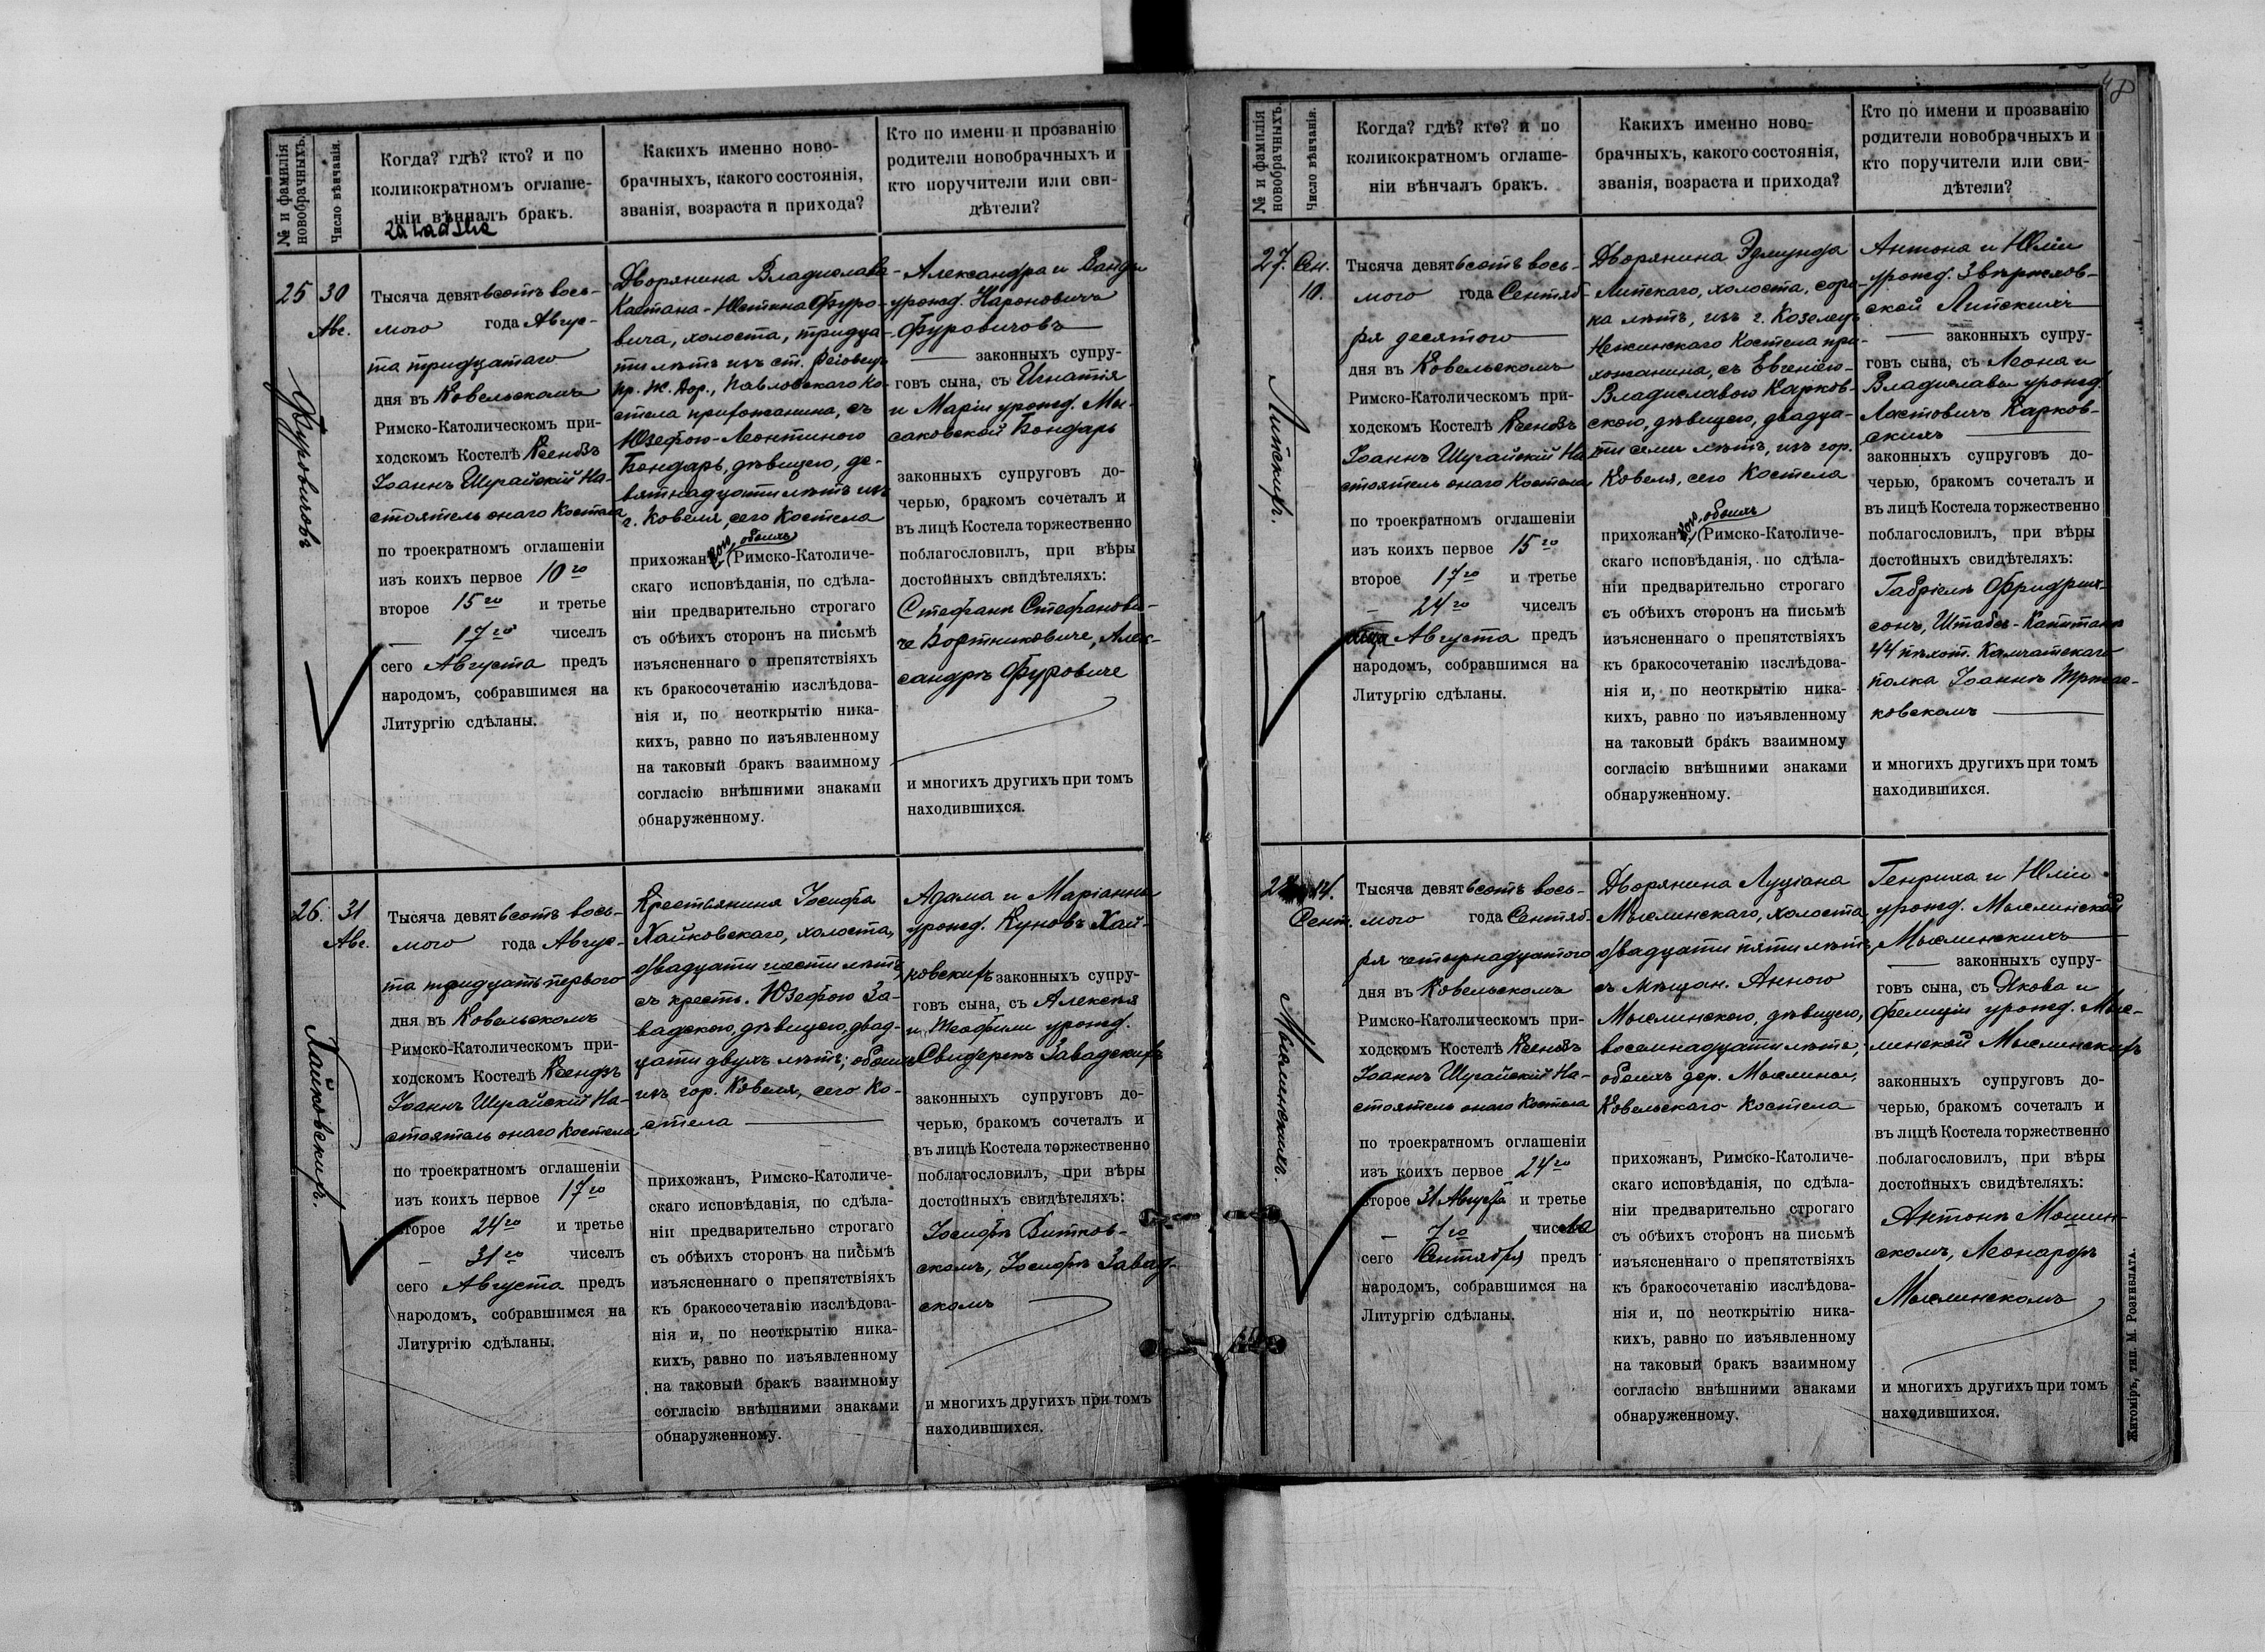 № и фамилія новобрачныхъ.
Число вѣнчанія.
Когда? гдѣ? кто? и по
коликократномъ оглаше-
ніи вѣнчалъ бракъ.
Какихъ именно ново-
брачныхъ, какого состоянія,
званія, возраста и прихода?
Кто по имени и прозванію
родители новобрачныхъ и
кто поручители или сви-
дѣтели?
25
30
Авг.
Фуровичовъ
Тысяча девятьсотъ вось-
мого года Авгус-
та тридцатаго
дня въ Ковельскомъ
Римско-Католическомъ при-
ходскомъ Костелѣ Ксендзъ
Іоаннъ Шугайскій На-
стоятель онаго Костела
по троекратномъ оглашеніи
изъ коихъ первое 10го
второе 15го и третье
17го чиселъ
сего Августа предъ
народомъ, собравшимся на
Литургію сдѣланы.
Дворянина Владислава-
Каэтана-Юстина Фуро-
вича, холоста, тридца-
ти лѣтъ изъ ст.
Пр. Ж. Дор., Павловскаго Ко-
стела прихожанина, съ
Юзефою-Леонтиною
Бондарь, дѣвицею, де-
вятнадцати лѣтъ изъ
г. Ковеля, сего Костела
прихожан обоихъ Римско-Католиче-
скаго исповѣданія, по сдѣла-
ніи предварительно строгаго
съ обѣихъ сторонъ на письмѣ
изъясненнаго о препятствіяхъ
къ бракосочетанію изслѣдова-
нія и, по неоткрытію ника-
кихъ, равно по изъявленному
на таковый бракъ взаимному
согласію внѣшними знаками
обнаруженному.
Александра и Ванды
урожд. Нароновичъ
Фуровичовъ
законныхъ супру-
говъ сына, съ Игнатія
и Маріи урожд. Мы-
саковской Бондарь
законныхъ супруговъ до-
черью, бракомъ сочеталъ и
въ лицѣ Костела торжественно
поблагословилъ, при вѣры
достойныхъ свидѣтеляхъ:
Стефанѣ Стефанови-
че Бортниковиче, Алек-
сандрѣ Фуровиче
и многихъ другихъ при томъ
находившихся.
26.
31
Авг.
Хайковскихъ.
Тысяча девятьсотъ вось-
мого года Авгус-
та тридцать перваго
дня въ Ковельскомъ
Римско-Католическомъ при-
ходскомъ Костелѣ Ксендзъ
Іоаннъ Шугайскій На-
стоятель онаго Костела
по троекратномъ оглашеніи
изъ коихъ первое 17го
второе 24го и третье
31го чиселъ
сего Августа предъ
народомъ, собравшимся на
Литургію сдѣланы.
Крестьянина Іосифа
Хайковскаго, холоста,
двадцати шести лѣтъ
съ кресть. Юзефою За-
вадскою, дѣвицею, двад-
цати двухъ лѣтъ; обоихъ
изъ гор. Ковеля, сего Ко-
стела
прихожанъ, Римско-Католиче-
скаго исповѣданія, по сдѣла-
ніи предварительно строгаго
съ обѣихъ сторонъ на письмѣ
изъясненнаго о препятствіяхъ
къ бракосочетанію изслѣдова-
нія и, по неоткрытію ника-
кихъ, равно по изъявленному
на таковый бракъ взаимному
согласію внѣшними знаками
обнаруженному.
Адама и Маріанны
урожд. Куновъ Хай-
ковскихъ законныхъ супру-
говъ сына, съ Алексѣя
и Теофили урожд.
Свидерекъ Завадскихъ
законныхъ супруговъ до-
черью, бракомъ сочеталъ и
въ лицѣ Костела торжественно
поблагословилъ, при вѣры
достойныхъ свидѣтеляхъ:
Іосифѣ Витков-
скомъ, Іосифѣ Завад-
скомъ
и многихъ другихъ при томъ
находившихся.
48
№ и фамилія новобрачныхъ.
Число вѣнчанія.
Когда? гдѣ? кто? и по
коликократномъ оглаше-
ніи вѣнчалъ бракъ.
Какихъ именно ново-
брачныхъ, какого состоянія,
званія, возраста и прихода?
Кто по имени и прозванію
родители новобрачныхъ и
кто поручители или сви-
дѣтели?
27.
Сен.
10.
Липскихъ.
Тысяча девятьсотъ вось-
мого года Сентяб-
ря десятого
дня въ Ковельскомъ
Римско-Католическомъ при-
ходскомъ Костелѣ Ксендзъ
Іоаннъ Шугайскій На-
стоятель онаго Костела
по троекратномъ оглашеніи
изъ коихъ первое 15го
второе 17го и третье
24го чиселъ
Августа предъ
народомъ, собравшимся на
Литургію сдѣланы.
Дворянина Эдмунда
Липскаго, холоста, соро-
ка лѣтъ, изъ г. Козелецъ
Нежинскаго Костела при-
хожанина, съ Евгеніею-
Владиславою Карков-
скою, дѣвицею, двадца-
ти семи лѣтъ, изъ гор.
Ковеля, сего Костела
прихожан обоихъ Римско-Католиче-
скаго исповѣданія, по сдѣла-
ніи предварительно строгаго
съ обѣихъ сторонъ на письмѣ
изъясненнаго о препятствіяхъ
къ бракосочетанію изслѣдова-
нія и, по неоткрытію ника-
кихъ, равно по изъявленному
на таковый бракъ взаимному
согласію внѣшними знаками
обнаруженному.
Антона и Юліи
урожд. Звѣржхов-
ской Липскихъ
законныхъ супру-
говъ сына, съ Леона и
Владиславы урожд.
Ластовичъ Карков-
скихъ
законныхъ супруговъ до-
черью, бракомъ сочеталъ и
въ лицѣ Костела торжественно
поблагословилъ, при вѣры
достойныхъ свидѣтеляхъ:
Габріелѣ Фридрих-
сонъ, Штабсъ-Капитанѣ
44 пѣхот. Камчатскаго
полка Іоаннѣ
ковскомъ
и многихъ другихъ при томъ
находившихся.
28
14.
Сент.
Мыслинскихъ.
Тысяча девятьсотъ вось-
мого года Сентяб-
ря четырнадцатого
дня въ Ковельскомъ
Римско-Католическомъ при-
ходскомъ Костелѣ Ксендзъ
Іоаннъ Шугайскій На-
стоятель онаго Костела
по троекратномъ оглашеніи
изъ коихъ первое 24го
второе 31 Августа и третье
7го числа
сего Сентября предъ
народомъ, собравшимся на
Литургію сдѣланы.
Дворянина Луціана
Мыслинскаго, холоста,
двадцати пяти лѣтъ,
съ мѣщан. Анною
Мыслинскою, дѣвицею,
восемнадцати лѣтъ,
обоихъ дер. Мыслины,
Ковельскаго Костела
прихожанъ, Римско-Католиче-
скаго исповѣданія, по сдѣла-
ніи предварительно строгаго
съ обѣихъ сторонъ на письмѣ
изъясненнаго о препятствіяхъ
къ бракосочетанію изслѣдова-
нія и, по неоткрытію ника-
кихъ, равно по изъявленному
на таковый бракъ взаимному
согласію внѣшними знаками
обнаруженному.
Генриха и Юліи
урожд. Мыслинской
Мыслинскихъ
законныхъ супру-
говъ сына, съ Якова и
Фелиціи урожд. Мыс-
линской Мыслинскихъ
законныхъ супруговъ до-
черью, бракомъ сочеталъ и
въ лицѣ Костела торжественно
поблагословилъ, при вѣры
достойныхъ свидѣтеляхъ:
Антонѣ Мошин-
скомъ, Леонардѣ
Мыслинскомъ
и многихъ другихъ при томъ
находившихся.
Житоміръ, тип. М. Розенблата.